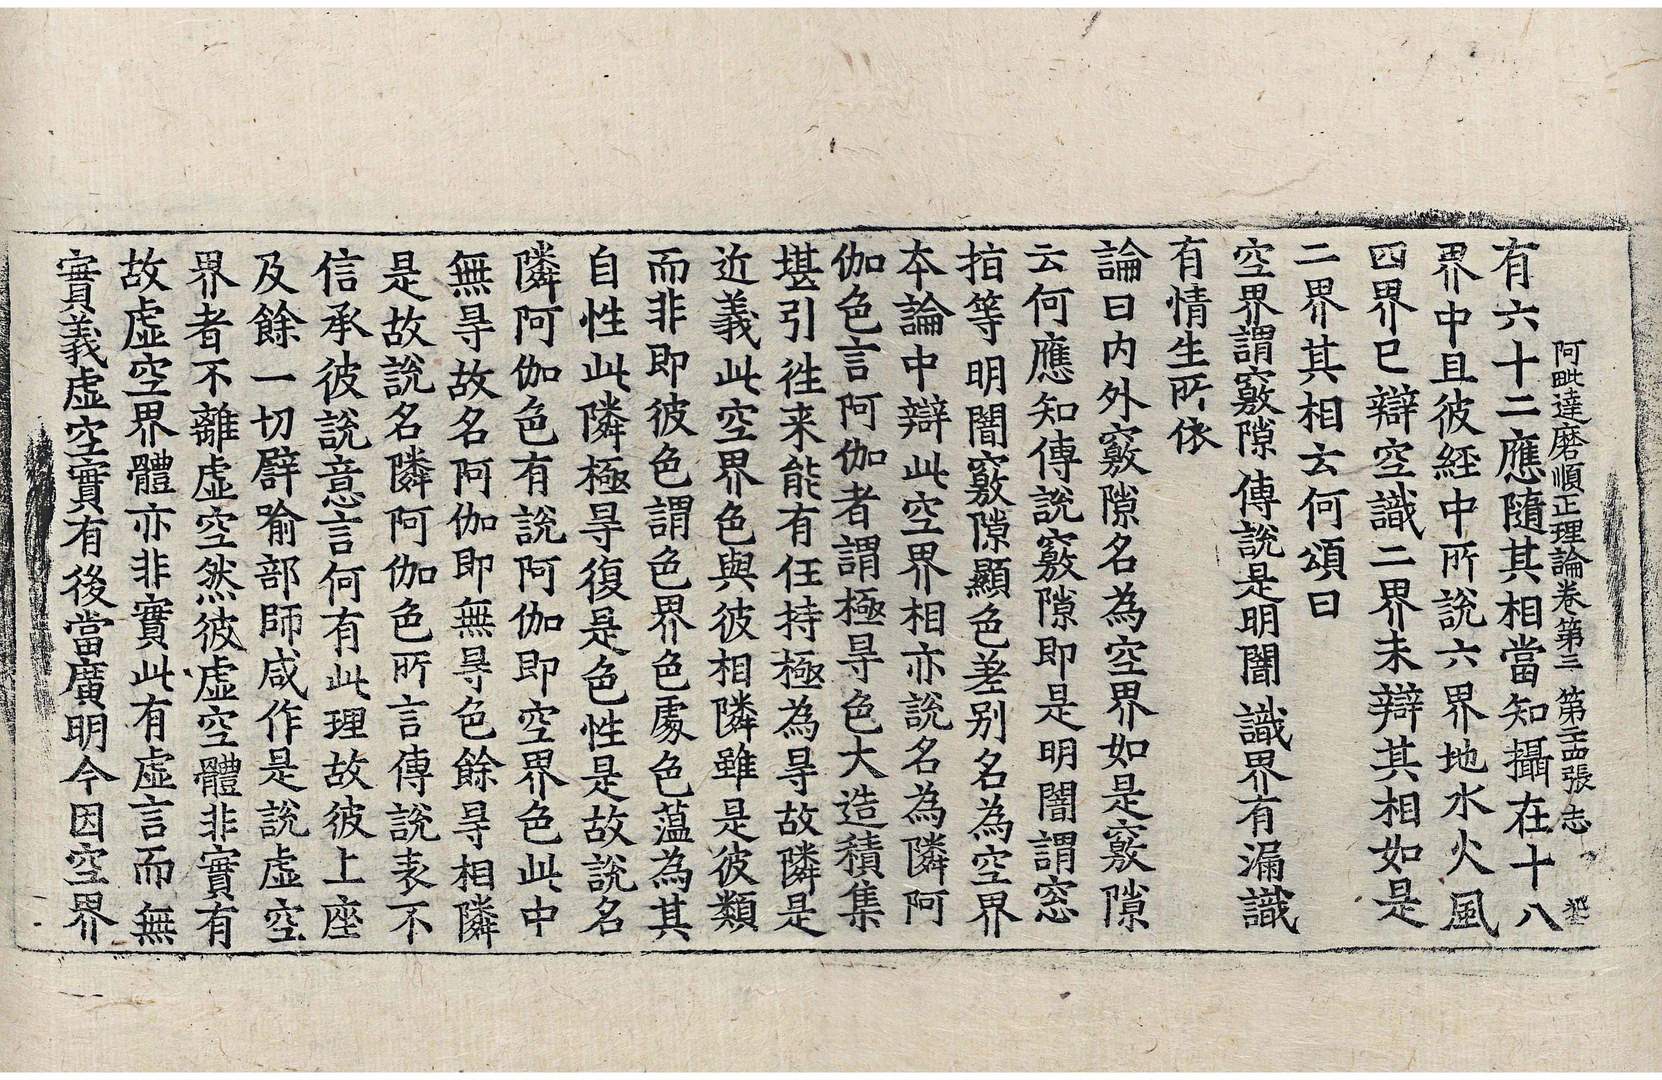 阿毗達磨順正理論卷第三 第二十四張 志
有六十二應隨其相當知攝在十八
界中且彼經中所說六界地水火風
四界已辯空識二界未辯其相如是
二界其相云何頌曰
空界謂竅隙 傳說是明闇 識界有漏識
有情生所依
論曰內外竅隙名為空界如是竅隙
云何應知傳說竅隙即是明闇謂窓
指等明闇竅隙顯色差別名為空界
本論中辯此空界相亦說名為隣阿
伽色言阿伽者謂極㝵色大造積集
堪引往来能有任持極為㝵故隣是
近義此空界色與彼相隣雖是彼類
而非即彼色謂色界色處色蕰為其
自性此隣極㝵復是色性是故說名
隣阿伽色有說阿伽即空界色此中
無㝵故名阿伽即無㝵色餘㝵相隣
是故說名隣阿伽色所言傳說表不
信承彼說意言何有此理故彼上座
及餘一切譬喻部師咸作是說虛空
界者不離虛空然彼虛空體非實有
故虛空界體亦非實此有虛言而無
實義虛空實有後當廣明今因空界